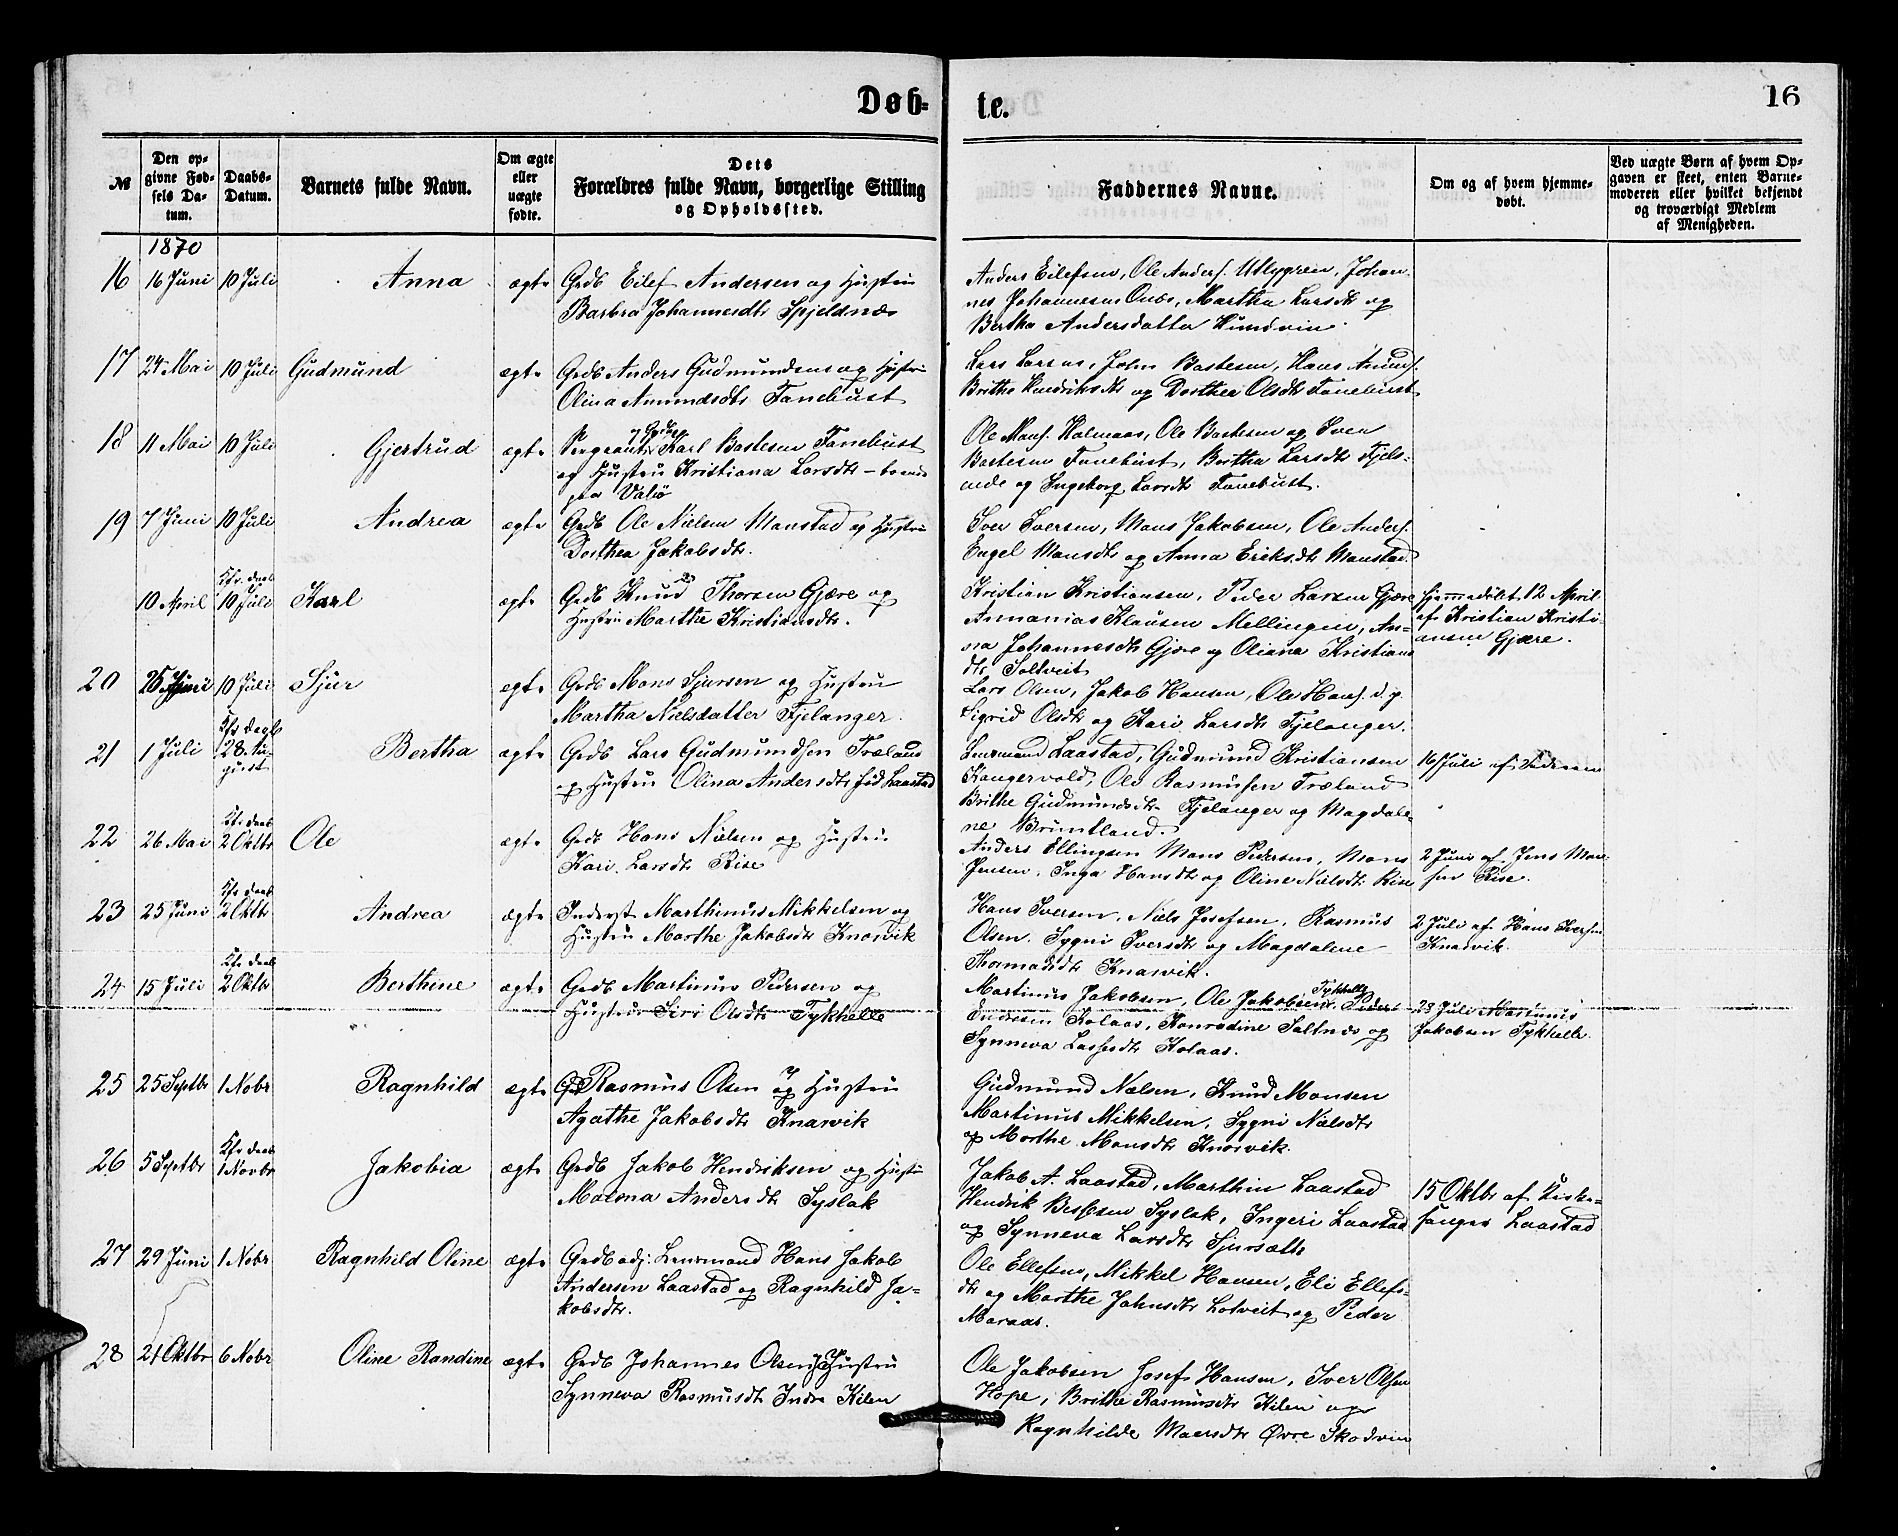 Døb-
te.
16
№
Den op-
givne Fød-
sels Da-
tum.
Daabs-
Datum.
Barnets fulde Navn.
Om ægte
eller
uægte
fødte.
Dets
Forældres fulde Navn, borgerlige Stilling
og Opholdssted.
Faddernes Navne.
Om og af hvem hjemme-
døbt.
Ved uægte Børn af hvem Op-
gaven er skeet, enten Barne-
moderen eller hvilket bekjendt
og troværdigt Medlem
af Menigheden.
1870
16 16 Juni 10 Juli Anna ægte Grdb Eilef Andersen og Hustru
Barbra Johannesdtr Spjeldnæs
Anders Eilefsen, Ole Anders.
nes Johannesen Onæs, Martha Larsdtr og
Bertha Andersdatter Hundvin.
17 24 Mai 10 Juli Gudmund ægte Grdb Anders Gudmundsen og Hustru
Olina Amundsdtr Fanebust
Lars Larsen, John Bastesen, Hans
Brithe Hendriksdtr og Dorthea Olsdtr Fanebust
18 11 Mai 10 Juli Gjertrud ægte Sergeant Karl Bastesen Fanebust
og Hustru Kristiana Larsdtr
paa Valø
Ole Mons. Holmaas, Ole Bastesen og Sven
Bastesen Fanebust, Bertha Larsdtr Fjels-
ende og Ingeborg Larsdtr Fanebust.
19 7 Juni 10 Juli Andrea ægte Grdb Ole Nielsen Monstad og Hustru
Dorthea Jakobsdtr.
Iver Iversen, Mons Jakobsen, Ole Anders.
Engel Monsdtr og Anna Eriksdtr Monstad
10 April Kfr. daab
10 Juli Karl ægte Grdb Knud Thorsen Gjære og
Hustru Marthe Kristiansdtr.
Kristian Kristiansen, Peder Larsen Gjære
Annanias Klausen Mellingen, An-
na Johannesdtr Gjære og Oliana Kristians
dtr Soltveit
hjemmedøbt 12 April
af Kristian Kristi-
ansen Gjære.
20 10 Juli Sjur ægte Grdb Mons Sjursen og Hustru
Martha Nielsdatter Fjelanger.
Lars Olsen, Jakob Hansen, Ole Hans. d.y.
Sigrid Olsdtr og Kari Larsdtr Fjelanger.
21 1 Juli Kfr daab
28 Au-
gust Bertha ægte Grdb Lars Gudmundsen Træland
og Hustru Olina Andersdtr fød Laastad
Lensmand Laastad, Gudmund Kristiansen
Kongevold, Ole Rasmussen Træland
Brithe Gudmundsdtr Fjelanger og Magdale-
ne Bruntland.
16 Juli af Faderen
22 26 Mai Kfr daab
2 Oktbr Ole ægte Grdb Hans Nielsen og Hustru
Kari Larsdtr Rise
Anders Ellingsen Mons Pedersen, Mons
Jensen, Inga Hansdtr og Oline Nielsdtr Rise
2 Juni af Jens Mon-
sen Rise.
23 25 Juni Kfr daab
2 Oktbr Andrea ægte Inderst Marthinus Mikkelsen og
Hustru Marthe Jakobsdtr Knarvik
Hans Iversen, Niels Josefsen, Rasmus
Olsen. Sygni Iversdtr og Magdalene
Thormodsdtr Knarvik.
2 Juli af Hans Iversen
Knarvik
24 15 Juli Kfr daab
2 Oktbr Berthine ægte Grdb Martinus Pedersen og
Hustru Siri Olsdtr Tykhelle
Martinus Jakobsen, Ole Jakobsen Tykhelle, Peder
Endresen Kolaas, Konradine Saltnæs og
Synneva Lassesdtr Kolaas.
23 Juli Martinus
Jakobsen Tykhelle.
25 25 Septbr 1 Nobr Ragnhild ægte Grdb Rasmus Olsen og Hustru
Agathe Jakobsdtr Knarvik
Gudmund Nielsen, Knud Monsen
Martinus Mikkelsen, Sygni Nielsdtr
og Marthe Monsdtr Knarvik.
26 5 Septbr Kfr daab
1 Novbr Jakobia ægte Grdb Jakob Hendriksen og Hustru
Malena Andersdtr Syslak
Jakob A. Laastad, Marthin Laastad
Hendrik Bessesen Syslak, Ingeri Laastad
og Synneva Larsdtr Sjursætte
15 Oktbr af Kirke-
sanger Laastad
27 29 Juni 1 Nobr Ragnhild Oline ægte Grdb adj. Lensmand Hans Jakob
Andersen Laastad og Ragnhild Ja-
kobsdtr.
Ole Ellefsen, Mikkel Hansen, Eli Ellefs-
dtr og Marthe Johnsdtr Lotveit og Peder
Maraas.
28 21 Oktbr 6 Nobr Oline Randine ægte Grdb Johannes Olsen og Hustru
Synneva Rasmusdtr Indre Kilen
Ole Jakobsen Josef Hansen, Iver Olsen
Hope, Brithe Rasmusdtr Kilen og
Ragnhilde Øvre Skodvin